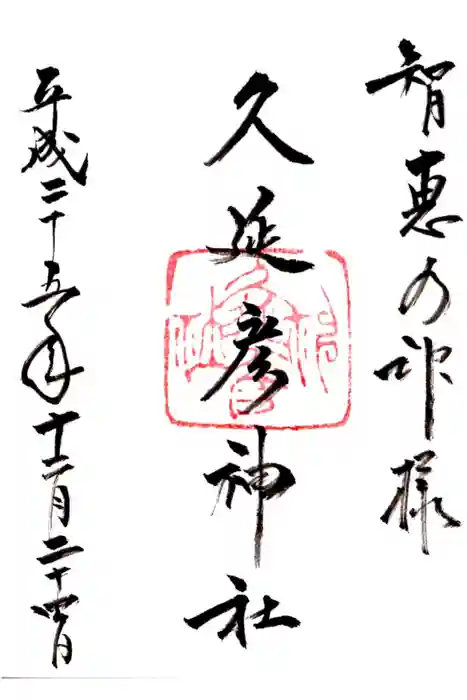 智恵の神様
久延彦神社
平成二十五年十二月二十四日